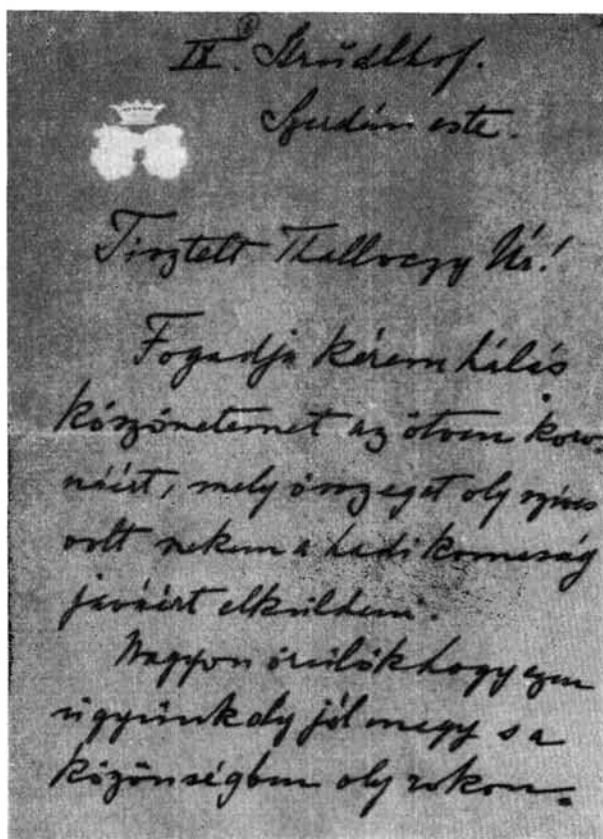 IX. Strudlhof.
Szerdán este.
Tisztelt Thallóczy Úr!
Fogadja kérem hálás
köszönetemet az ötven koro-
náért, mely összeget oly szíves
volt nekem a hadi komaság
javáért elküldeni.
Nagyon örülök hogy ezen
ügyünk oly jól megy s a
közönségben oly rokon-